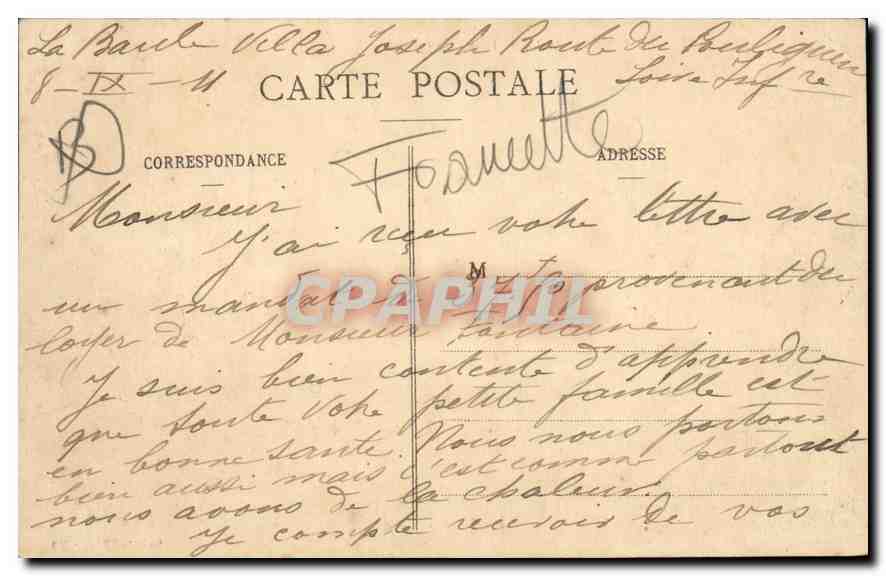 La Baule Villa Joseph Route du Pouliguen
8 - IX - 11 Loire Infre
CARTE POSTALE
CORRESPONDANCE
ADRESSE
Monsieur
J'ai reçu votre lettre avec
M
un mandat à provenant du
loyer de Monsieur Fontaine.
Je suis bien contente d'apprendre
que toute votre petite famille est
en bonne santé. Nous nous portons
bien aussi mais c'est comme partout
nous avons de la chaleur.
Je compte recevoir de vos
CPAPHIL